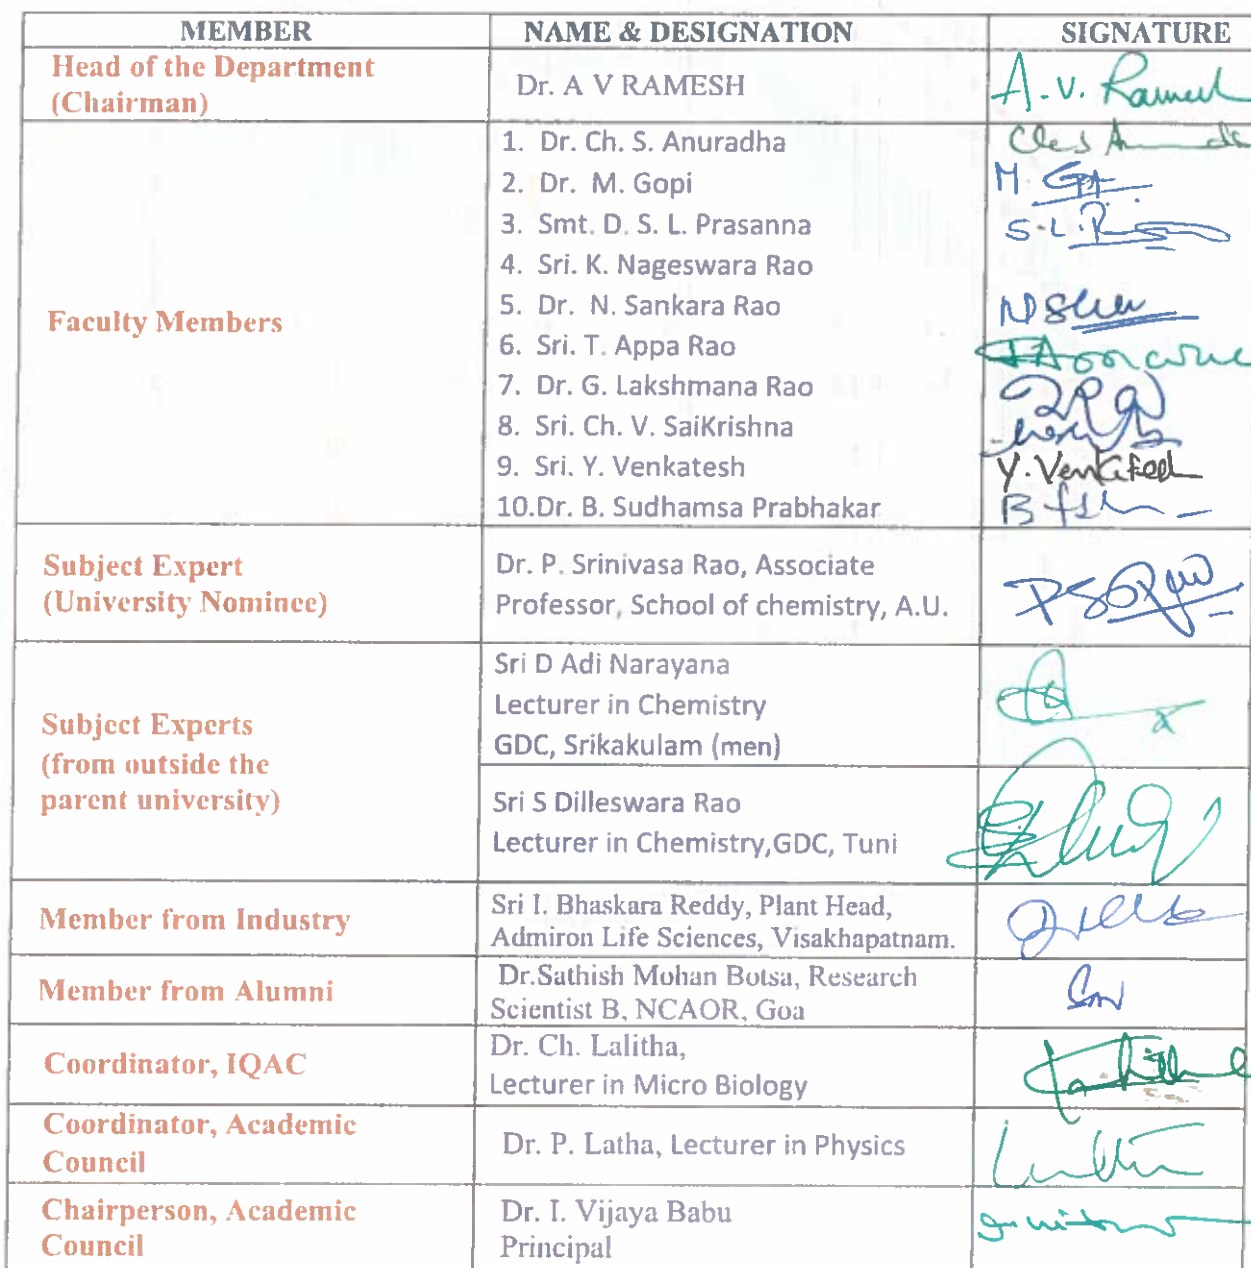 MEMBER NAME & DESIGNATION SIGNATURE
Head of the Department
(Chairman)
Dr. A V RAMESH
A. v. Ramesh
Faculty Members
1. Dr. Ch. S. Anuradha
2. Dr. M. Gopi
3. Smt. D. S. L. Prasanna
4. Sri. K. Nageswara Rao
5. Dr. N. Sankara Rao
6. Sri. T. Appa Rao
7. Dr. G. Lakshmana Rao
8. Sri. Ch. V. SaiKrishna
9. Sri. Y. Venkatesh
10.Dr. B. Sudhamsa Prabhakar
Y. Venkatesh
Subject Expert
(University Nominee)
Dr. P. Srinivasa Rao, Associate
Professor, School of chemistry, A.U.
Subject Experts
(from outside the
parent university)
Sri D Adi Narayana
Lecturer in Chemistry
GDC, Srikakulam (men)
Sri S Dilleswara Rao
Lecturer in Chemistry,GDC, Tuni
Member from Industry
Sri I. Bhaskara Reddy, Plant Head,
Admiron Life Sciences, Visakhapatnam.
Member from Alumni
Dr.Sathish Mohan Botsa, Research
Scientist B, NCAOR, Goa
Coordinator, IQAC
Dr. Ch. Lalitha,
Lecturer in Micro Biology
Coordinator, Academic
Council
Dr. P. Latha, Lecturer in Physics
Chairperson, Academic
Council
Dr. I. Vijaya Babu
Principal